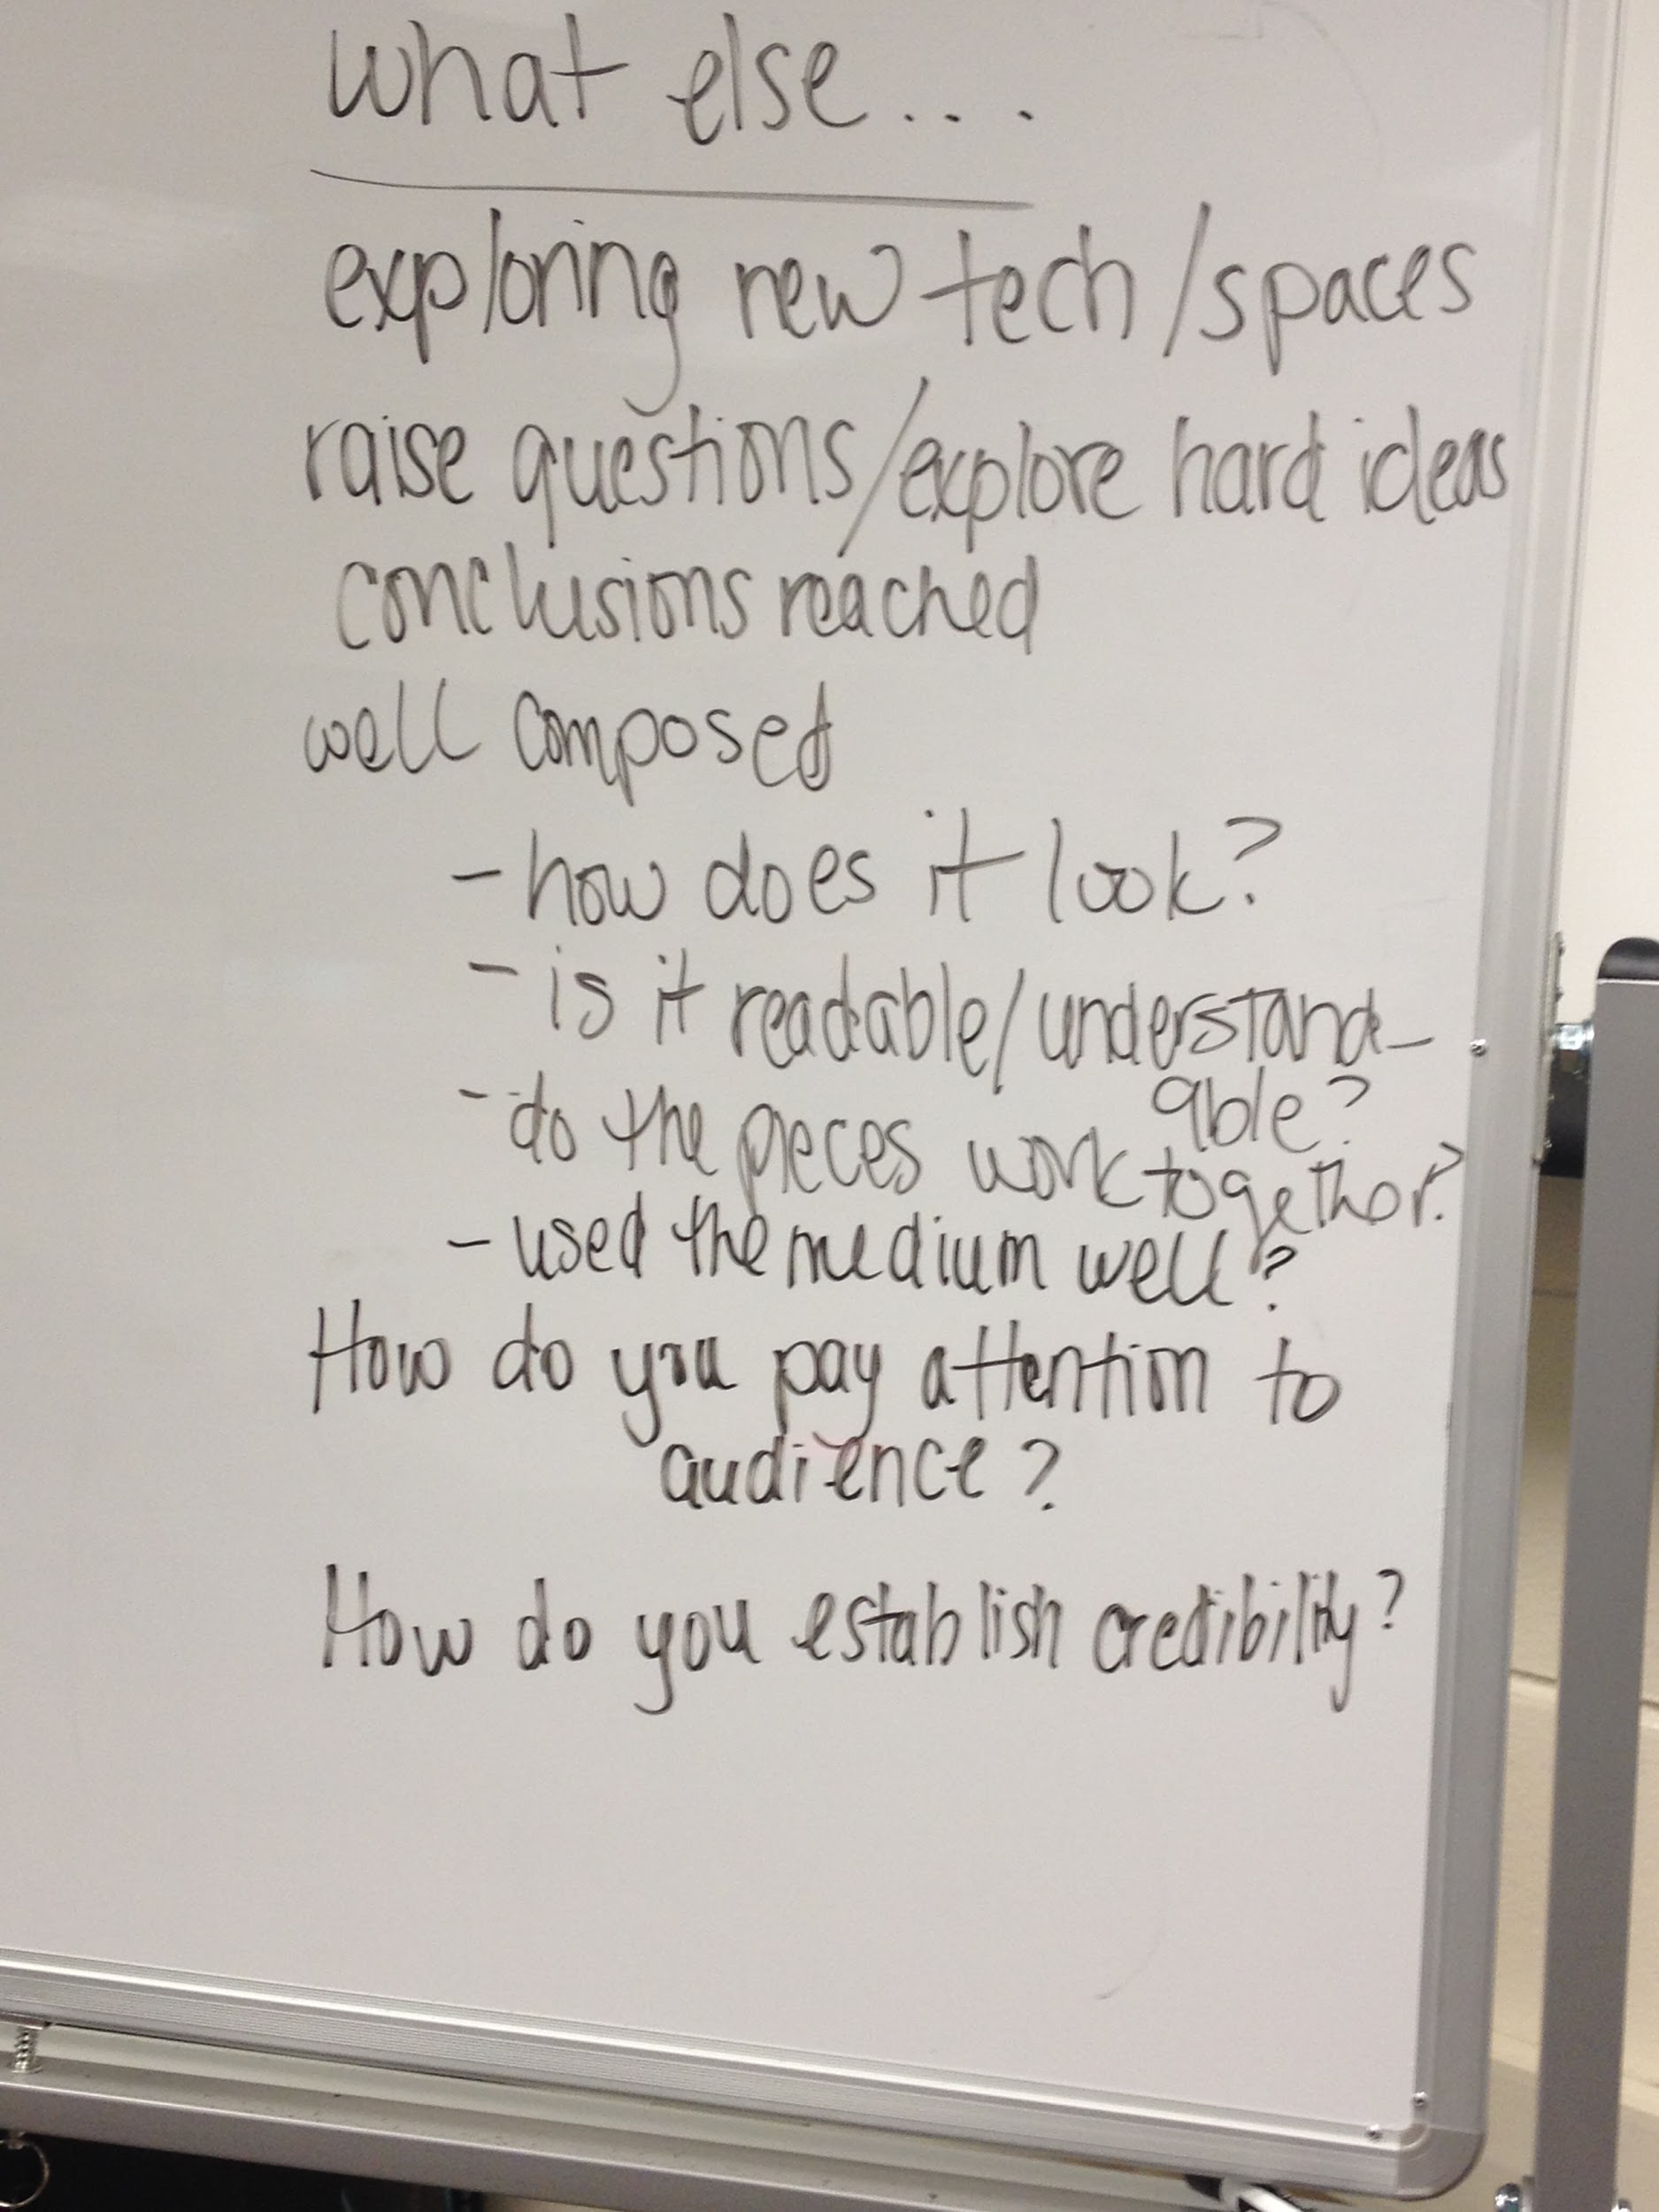 what else....
exploring new tech/spaces
raise questions/explore hard ideas
conclusions reached
well composed
- how does it look?
- is it readable/understand-
able?
- do the pieces work together?
- used the medium well?
How do you pay attention to
audience?
How do you establish credibility?